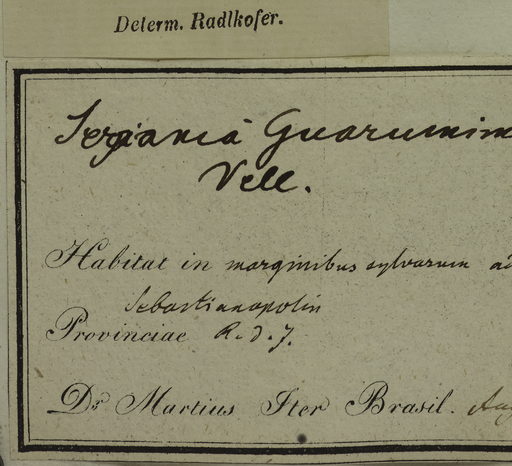 Determ. Radlkofer.
Serjania Guarumim
Vell.
Habitat in marginibus sylvarum ad
Sebastianopolin
Provinciae R. d. J.
Dr Martius Iter Brasil. Aug